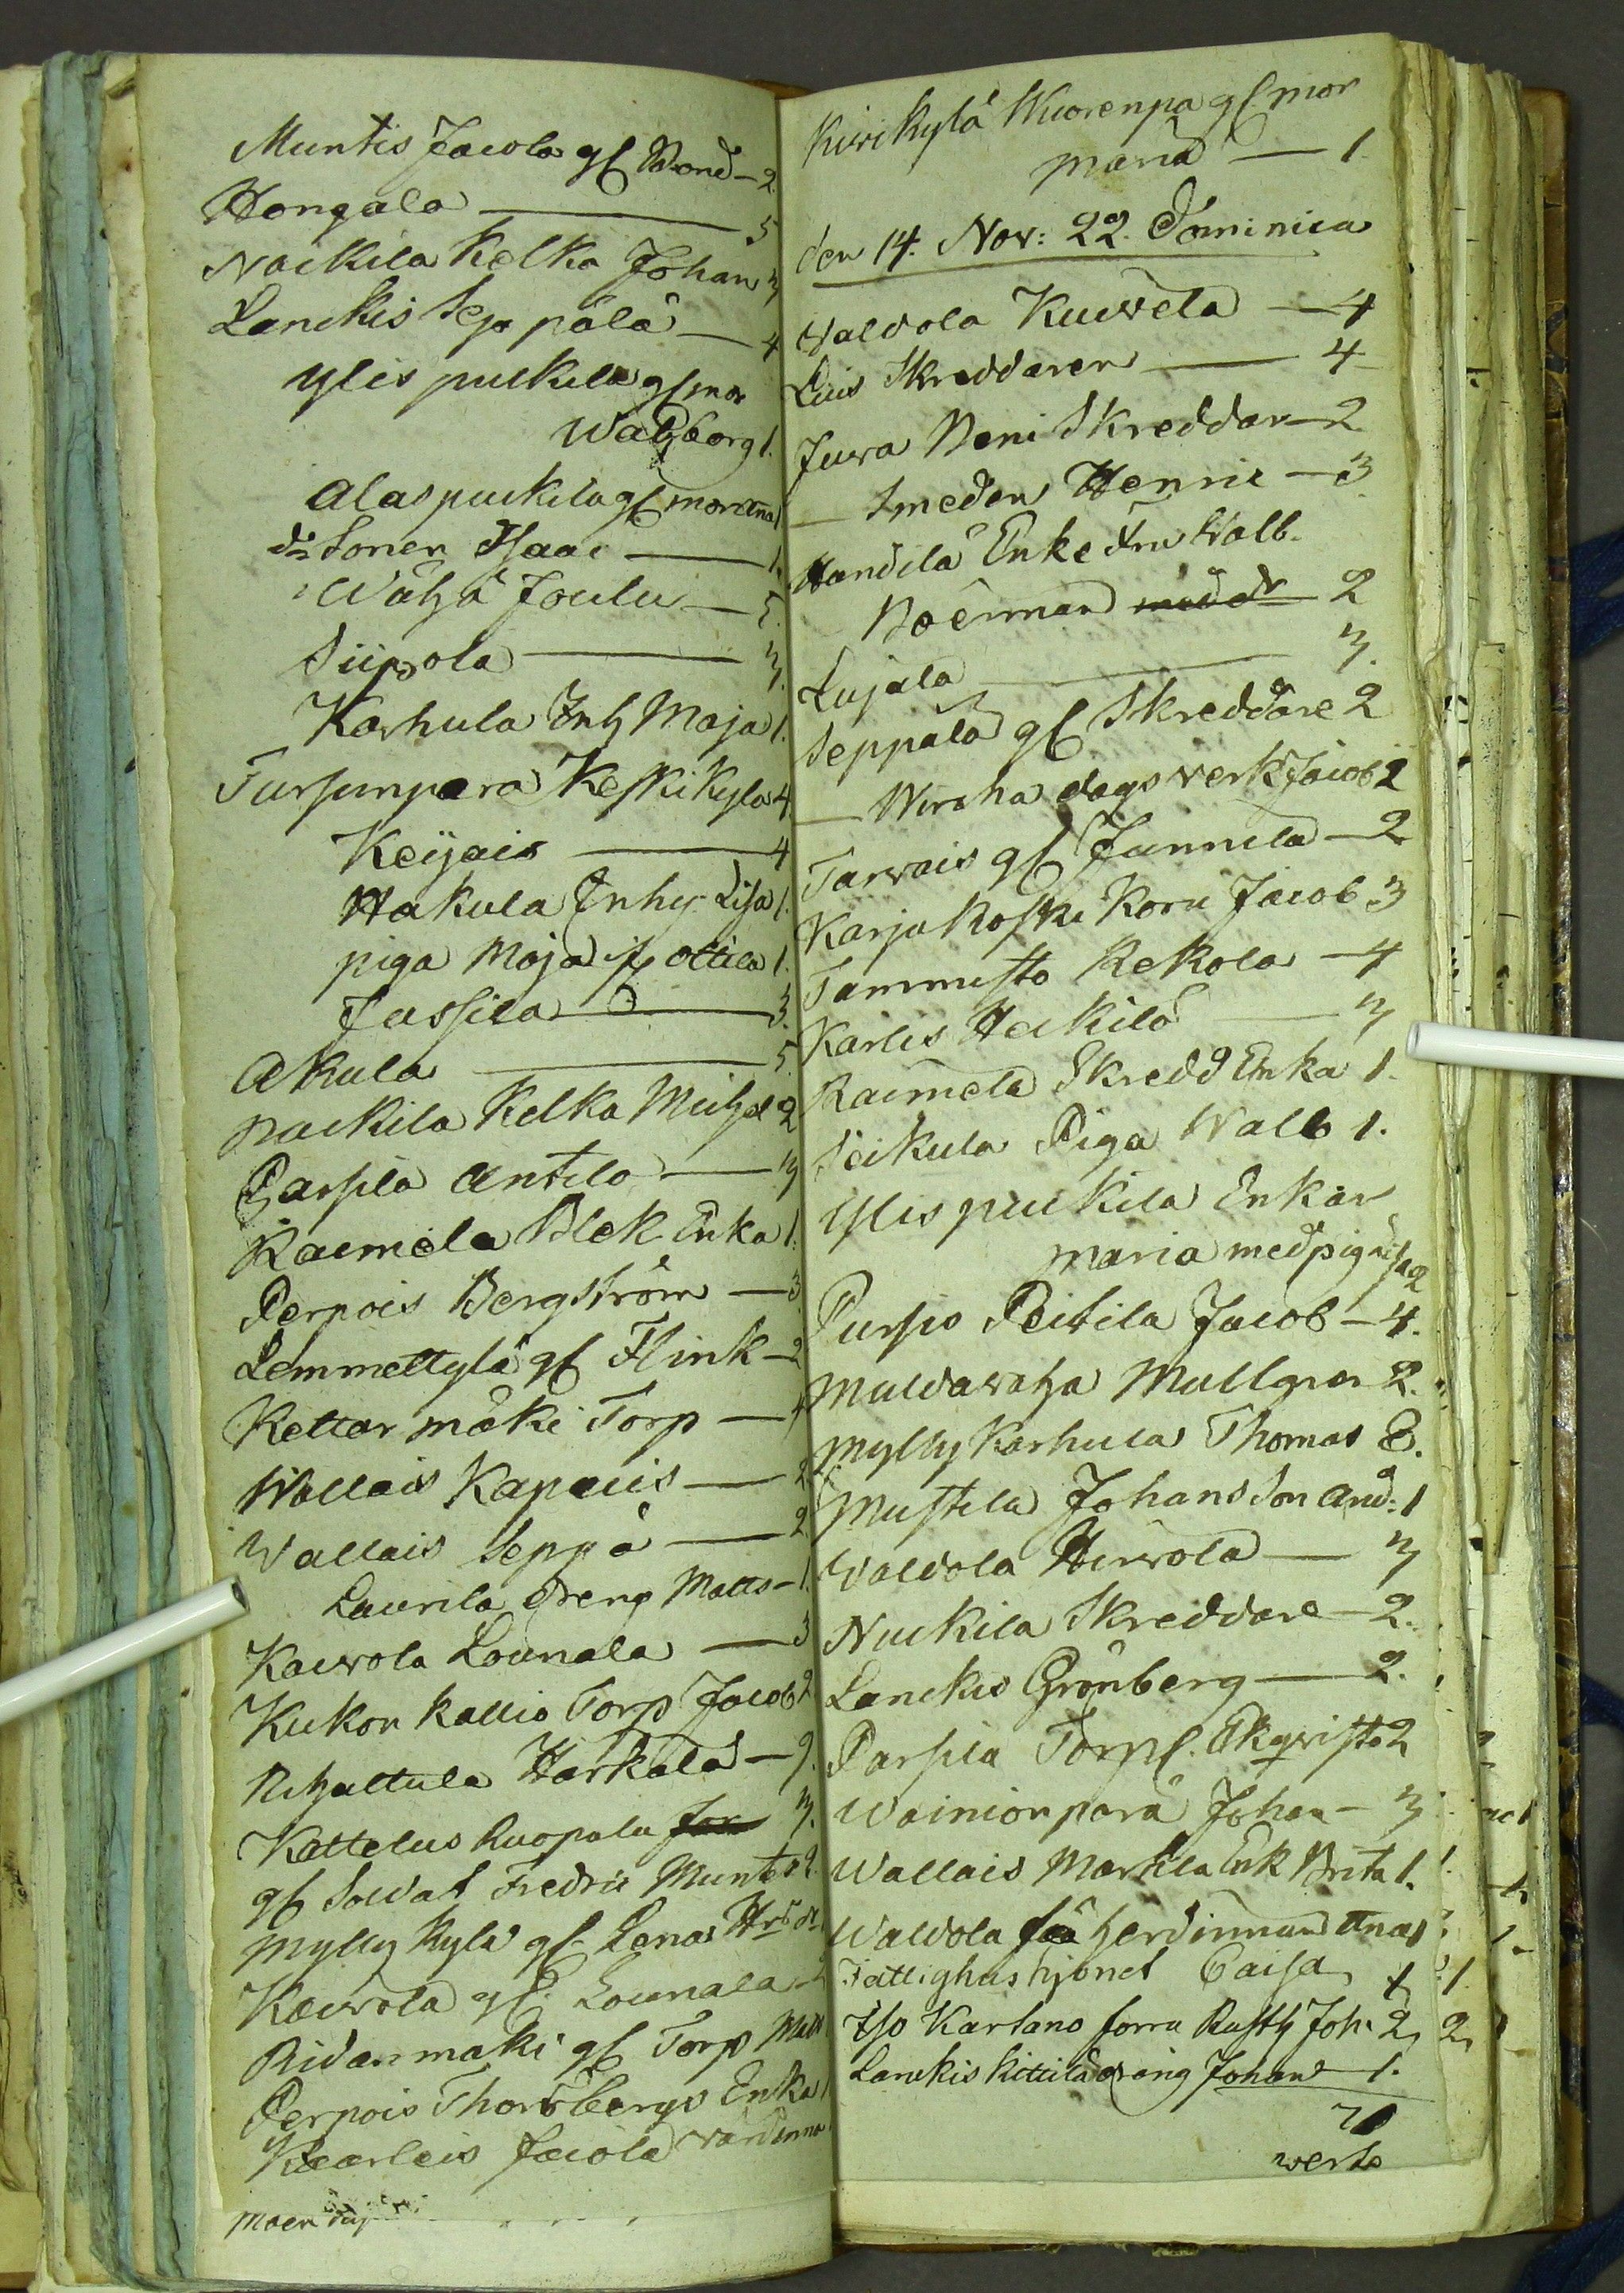 Muntis Jacola gl Bond — 2.
Hongala — 5
Nackila Kelka Johan 3
Lanckis Sepäpälä — 4
Ylis puckila gl mor
Walborg 1.
Alas puckila gl mor Ana 1
do Sonen Isaac — 1.
Wähä Joulu — 5.
Siipola — 3.
Karhula Inh Maja 1.
Tursunpera Keskikyla 4.
Keijais — 4
Hakula Inhy Lisa 1.
piga Maja if Ottila 1.
Jussila — 3.
Akula — 5.
Nackila Kelka Michel 2
Parsila Antila — 3
Raimela Blek Enka 1.
Perpois Bergström — 3.
Lemmettylä gl Flink — 2
Kettar mäki Torp — 4
Wallais Kapais — 2.
Wallais Seppä — 2.
Laurila dreng Matts — 1.
Kauvola Lounala — 3
Kukon kallio Torp Jacob 2
Rihattula Harkälä — 9.
Kattelus Ruopala 3.
gl Soldat Fredric Munter 2.
Mylly Kylä gl Lenas
Kauvola gl. Lounala
Ridanmaki gl Torp Matt
Perpois Thordbergs Enka 1
Kaarleis Jaiola värdinna
Kirikylä Wuorenpa gl mor
Maria — 1.
den 14. Nov: 22. Dominica
Waldola Kuuvela — 4
Luis Skreddaren — 4
Juva Neni Skreddar — 2
— Smeden Henric — 3
Handila Enke fru Walb.
Noerman 2
Lujala — 3.
Seppälä gl Skreddare 2
— Wiraha dagsverk Jacob 2
Tarvais gl Junnila — 2
Karja Koski Koru Jacob 3
Tammisto Kekola — 4
Karlis Heikilä — 3
Raimela Skredd Enka 1.
Seikula Piga Walb 1.
Ylis puckila Enkan
Maria med piga Lisa 2
Purpo Peitila Jacob — 4.
Muldawaha Mullgren 2.
Mylly Karhula Thomas 2.
Mustila Johans Son And: 1
Waldola Hirvola — 3
Nuckila Skreddare — 2.
Lanckis Grönberg — 2.
Parsila Torpf. Ekqvist 2
Wainionpara Johan — 3
Wallais Markla Enk Brita 1.
Waldola fåhherdinnan Ana 1
Fattighushjonet Caisa 1
Iso Kartano forra Rusth Joh. 2
Lanckis Kittilä dräng Johan — 1.
71
werte